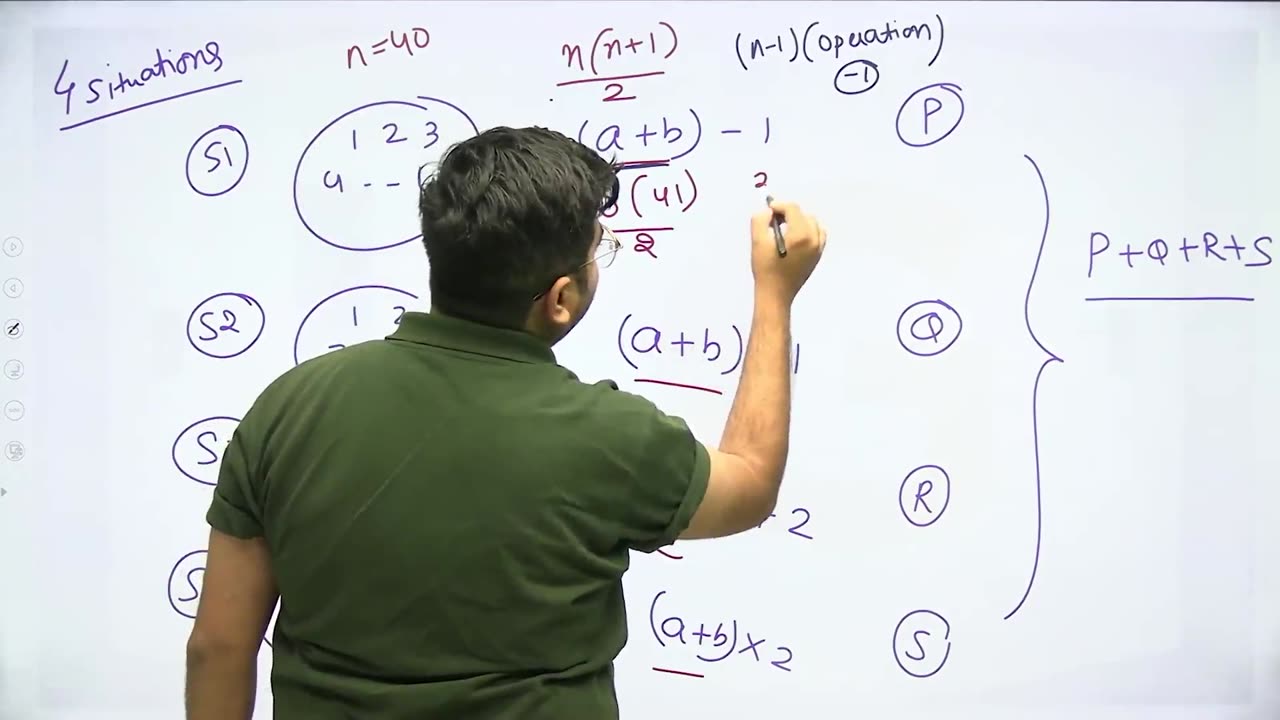 4 Situations
n=40
n(n+1)
2
(n-1)(operation)
-1
S1
1 2 3
4 - -
(a+b) - 1
(41)
2
2
P
S2
1 2
(a+b)
1
Q
P+Q+R+S
S
2
R
S
(a+b)×2
S